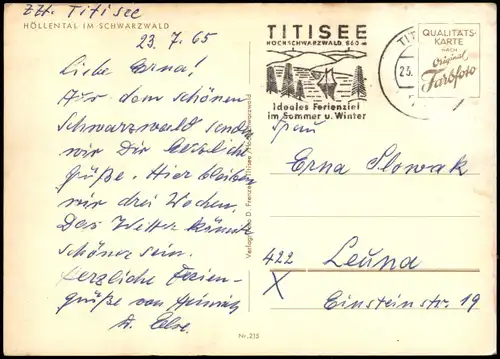 z.Zt. Titisee
HÖLLENTAL IM SCHWARZWALD
23.7.65
Liebe Erna!
Aus dem schönen
Schwarzwald senden
wir Dir herzliche
Grüße. Hier bleiben
wir drei Wochen.
Das Wetter könnte
schöner sein.
Herzliche Ferien-
grüße von Heinrich
u. Else.
Verlag Foto D. Frenzel, Titisee / Hochschwarzwald
Nr. 215
TITISEE
HOCHSCHWARZWALD 860 m
Ideales Ferienziel
im Sommer u. Winter
TITI
QUALITÄTS-
KARTE
NACH
Original
Farbfoto
Frau
Erna Slowak
422 Leuna
X
Einsteinstr. 19